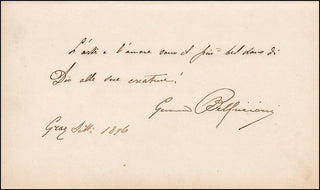 L'arte e l'amore sono il più bel dono di
Dio alle sue creature!
Gemma Bellincioni
Graz Sett: 1896